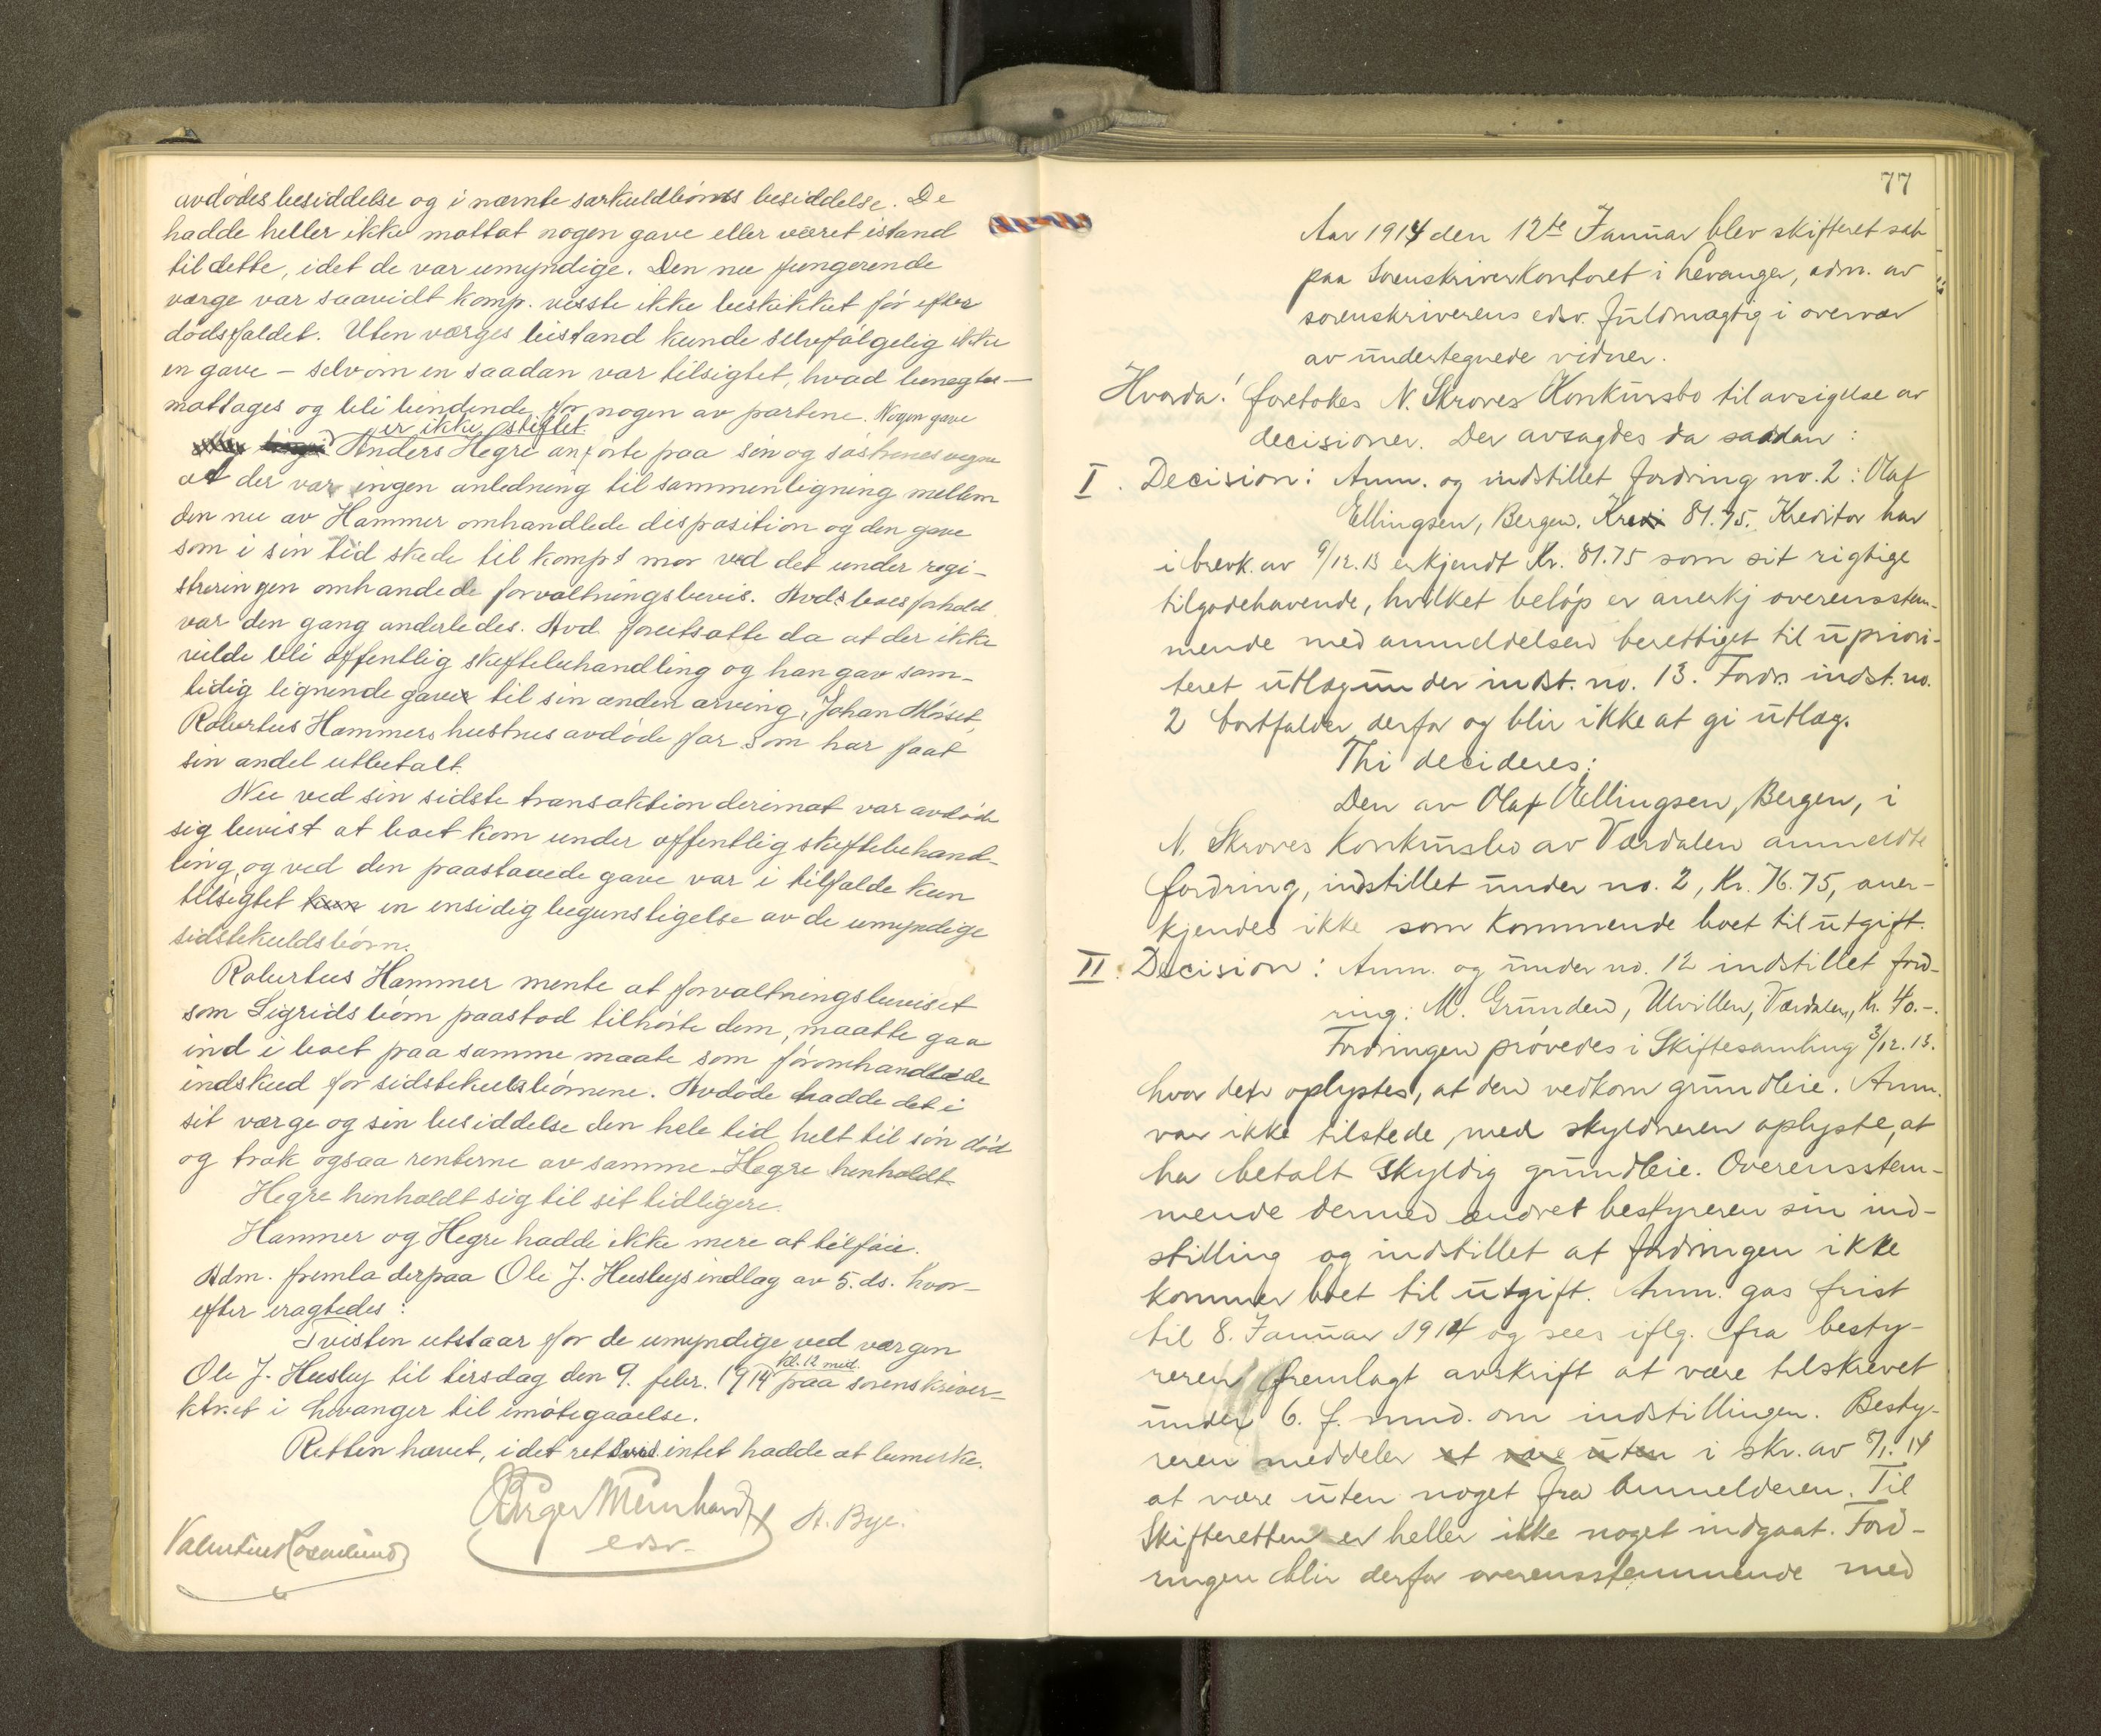 avdødes besiddelse og i nævnte særkuldbörns besiddelse. De
hadde heller ikke mottat nogen gave eller været istand
til dette, idet de var umyndige. Den nu fungerende
værge var saavidt komp. visste ikke beskikket før efter
dødsfaldet. Uten værges bistand kunde selvfølgelig ikke
en gave – selvom en saadan var tilsigtet, hvad benegtes –
mottages og bli bindende for nogen av partene. Nogen gave
er ikke stiftet.
Anders Hegre anførte paa sin og søstrenes vegne
at der var ingen anledning til sammenligning mellem
den nu av Hammer omhandlede disposition og den gave
som i sin tid skede til komps mor ved det under regi-
streringen omhandede forvaltningsbevis. Avds boes forhold
var den gang anderledes. Avd. forutsatte da at der ikke
vilde bli offentlig skiftebehandling og han gav sam-
tidig lignende gaver til sin anden arving, Johan Miset,
Robertus Hammers hustrus avdøde far som har faat
sin andel utbetalt.
Nu ved sin sidste transaktion derimot var avdøde
sig bevist at boet kom under offentlig skiftebehand-
ling, og ved den paastaaede gave var i tilfælde kun
tilsigtet kun en ensidig begunstigelse av de umyndige
sidstekuldsbörn.
Robertus Hammer mente at forvaltningsbeviset
som Sigrids börn paastod tilhørte dem, maatte gaa
ind i boet paa samme maate som føromhandlede
indskud for sidstekulsbörnene. Avdøde hadde det i
sit værge og sin besiddelse den hele tid helt til sin død
og trak ogsaa renterne av samme. Hegre henholdt
Hegre henholdt sig til sit tidligere.
Hammer og Hegre hadde ikke mere at tilføie.
Adm. fremla derpaa Ole J. Huslys indlæg av 5. ds. hvor-
efter eragtedes:
Tvisten utstaar for de umyndige ved værgen
kl. 12 mid.
Ole J. Husby til tirsdag den 9. febr. 1914 paa sorenskriver-
ktret i Levanger til imøtegaaelse.
Retten hævet, idet rettsvid. intet hadde at bemerke.
Birger Meinhardt
edsv.
A. Bye.
77
Aar 1914 den 12te Januar blev skifteret sat
paa Sorenskriverkontoret i Levanger, adm. av
sorenskriverens edsv. fuldmægtig i overvær
av undertegnede vidner.
Hvorda: foretokes N. Skroves Konkursbo til avsigelse av
decisioner. Der avsagdes da saadan:
I. Decision: Anm. og indstillet fordring no. 2: Olaf
Ellingsen, Bergen. Kr. 81.75. Kreditor har
i brevk. av 9/12.13 erkjendt Kr. 81.75 som sit rigtige
tilgodehavende, hvilket beløp er anerkj overensstem-
mende med anmeldelsen berettiget til upriori-
teret utlæg under indst. no. 13. Fordr. indst. no.
2 bortfalder derfor og blir ikke at gi utlæg.
Thi decideres:
Den av Olaf Ellingsen, Bergen, i
N. Skroves Konkursbo av Værdalen anmeldte
fordring, indstillet under no. 2, Kr. 76.75, aner-
kjendes ikke som kommende boet til utgift.
II. Decision: Anm. og under no. 12 indstillet ford-
ring: M. Grunden, Ulvillen, Værdalen, Kr. 40.-.
Fordringen prøvedes i Skiftesamling 3/12.13.
hvor det oplystes, at den vedkom grundleie. Anm.
var ikke tilstede, med skyldneren oplyste, at
ha betalt skyldig grundleie. Overensstem-
mende dermed ændret bestyreren sin ind-
stilling og indstillet at fordringen ikke
kommer boet til utgift. Anm. gas frist
til 8. Januar 1914 og sees iflg. fra besty-
reren fremlagt avskrift at være tilskrevet
under 6. f. mnd. om indstillingen. Besty-
reren meddeler at være uten i skr. av 8/1. 14
at være uten noget fra Anmelderen. Til
Skifteretten er heller ikke noget indgaat. Ford-
ringen blir derfor overensstemmende med